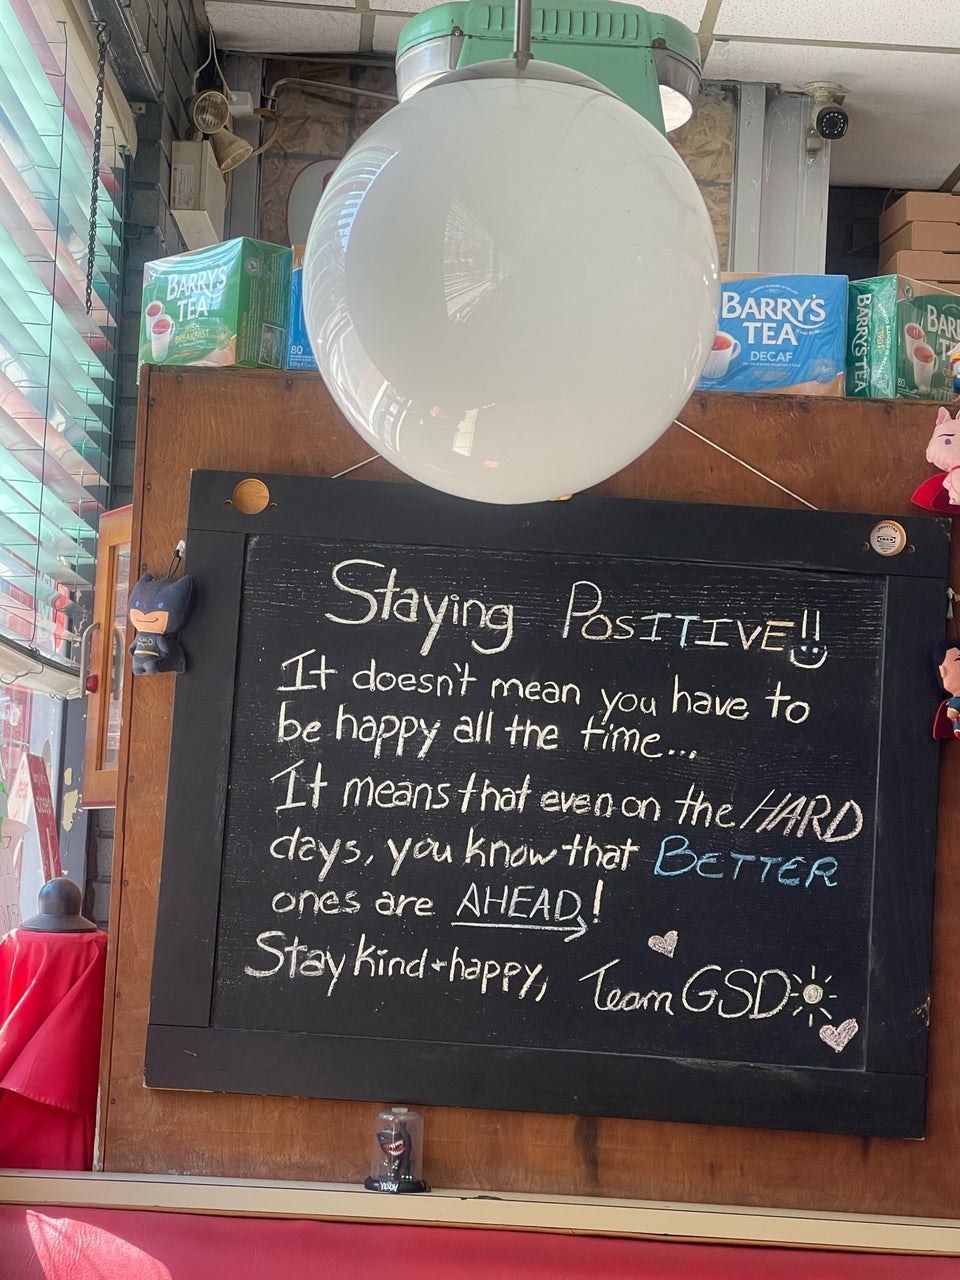 BARRY'S
TEA
IRISH
BREAKFAST
80
BARRY'S
TEA
DECAF
BARRY'S TEA
BARR
TEA
80
Staying POSITIVE!!
It doesn't mean you have to
be happy all the time...
It means that even on the HARD
days, you know that BETTER
ones are AHEAD!
Stay kind + happy,
Team GSD